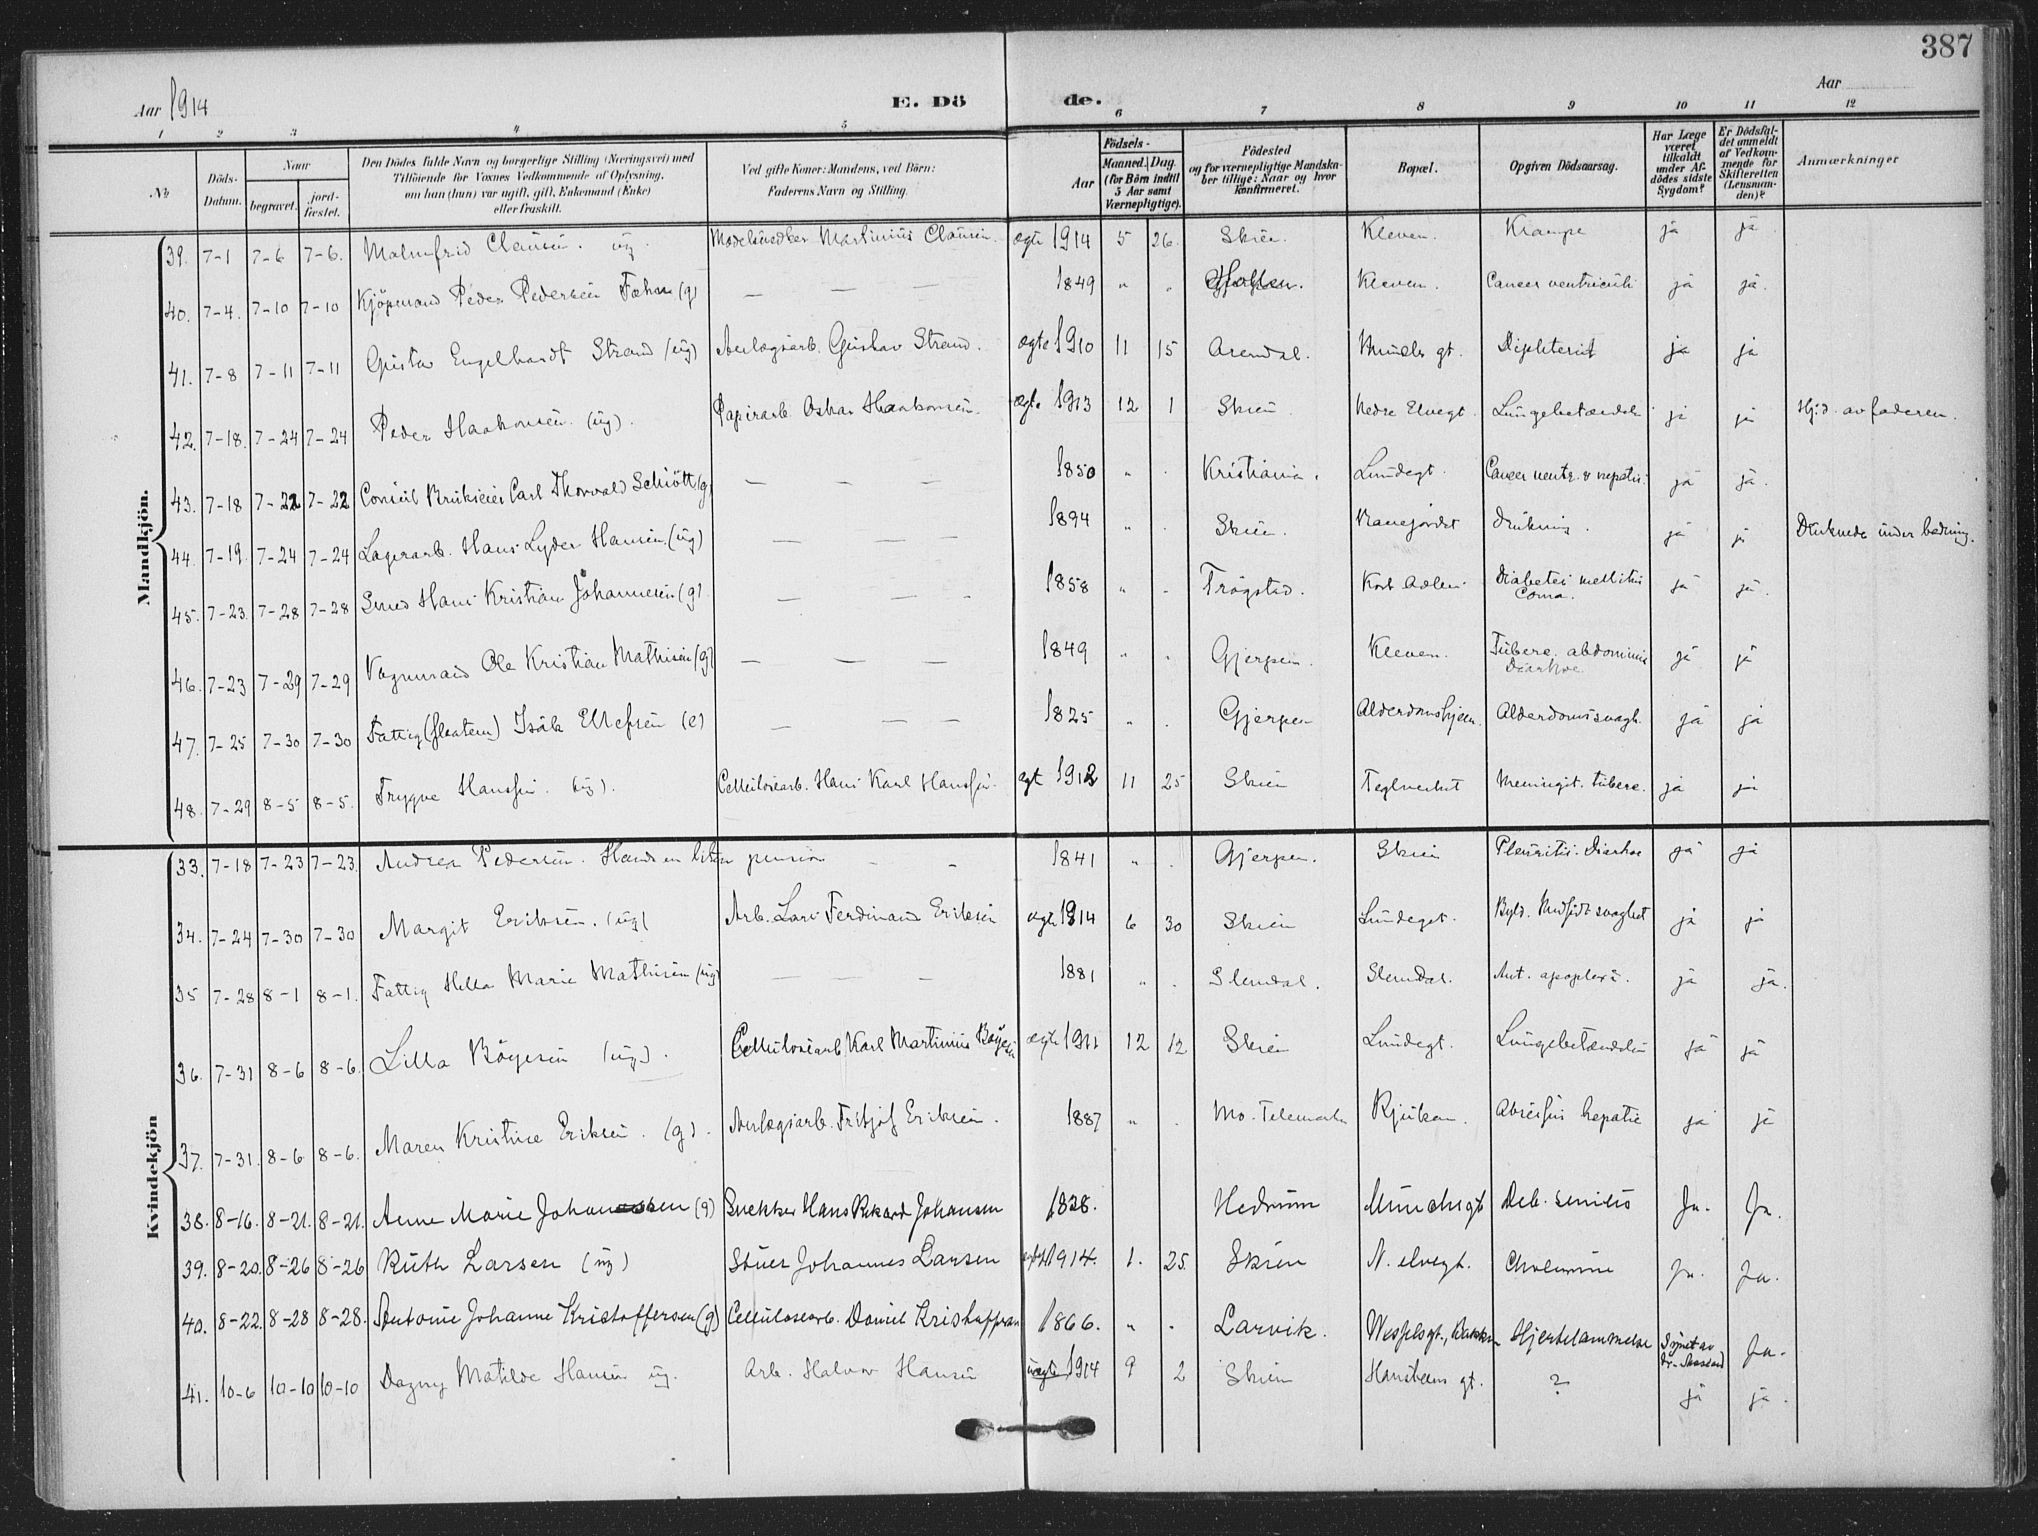 387
Aar 1914
E. Dö
de.
Aar
1 2 3 4 5 6 7 8 9 10 11 12
No
Döds-Datum.
Naar
begravet.
jord-fæstet.
Den Dödes fulde Navn og borgerlige Stilling (Næringsvei) med
Tilföiende for Voxnes Vedkommende af Oplysning,
om han (hun) var ugift, gift, Enkemand (Enke)
eller fraskilt.
Ved gifte Koner: Mandens, ved Börn:
Faderens Navn og Stilling.
Födsels-
Aar
Maaned. Dag.
(for Börn indtil
5 Aar samt
Værnepligtige).
Födested
og for værnepligtige Mandska-
ber tillige: Naar og hvor
konfirmeret.
Bopæl.
Opgiven Dödsaarsag.
Har Læge
været
tilkaldt
under Af-
dödes sidste
Sygdom?
Er Dödsfal-
det anmeldt
af Vedkom-
mende for
Skifteretten
(Lensman-
den)?
Anmærkninger
Mandkjön.
39. 7-1 7-6 7-6. Malmfrid Clausen. ug. Modelsnedker Martinius Clausen. ægte 1914 5 26. Skien. Kleven. Krampe ja ja
40. 7-4. 7-10 7-10 Kjöpmand Peder Pedersen (g) — — — 1849 " " Kleven. Cancer ventriculi ja ja.
41. 7-8 7-11 7-11 Gustav Engelhardt Strand (ug) Anlægsarb. Gustav Strand. ægte 1910 11 15 Arendal. Munchs gt. Difterit ja ja
42. 7-18. 7-24 7-24 Peder Haakonsen. (ug). Papirarb. Oskar Haakonsen. ægte 1913 12 1 Skien Nedre Elvegt. Lungebetændelse ja ja Hjd. av faderen.
43. 7-18 7-22 7-22 Konsul Brukseier Carl Thorvald Schiött (g) — — — 1850 " . Kristiania. Lundegt. Cancer ventr. & hepatis. ja ja.
44. 7-19. 7-24 7-24 Lagerarb. Hans Lyder Hansen. (ug) — — — 1894 " . Skien. drukning. ja ja Druknede under badning.
45. 7-23. 7-28 7-28 Smed Hans Kristian Johannesen (g). — — — 1858 " . Trögstad. Kort Adler. Diabetes mellitus
Coma. ja ja.
46. 7-23 7-29 7-29 Vognmand Ole Kristian Mathisen (g) — — — 1849 " . Gjerpen. Kleven. Tuberc. abdominis
Diarhoe. ja ja
47. 7-25 7-30 7-30 Fattig (fløatem) Isak Ellefsen (e) — — — 1825 " . Gjerpen Alderdomshjem. Alderdomssvagh. ja ja
48. 7-29 8-5 8-5. Trygve Hanssen. (ug). Cellulosearb. Hans Karl Hanssen. ægt 1912 11 25 Skien Teglverket Meningit. tuberc. ja ja
Kvindekjön
33. 7-18 7-23 7-23. Andrea Pedersen. Havde en liten pension — — 1841 " . Gjerpen. Skien Pleuritis. Diarhoe ja ja
34. 7-24 7-30 7-30 Margit Eriksen. (ug) Arb. Lars Ferdinand Eriksen ægte 1914 6 30 Skien Lundegt. Byld. Medfödt svaghet ja ja
35 7-28 8-1 8-1. Fattig Hella Marie Mathisen (ug) — — — 1881 " . Slemdal. Slemdal. apoplexi. ja ja.
36. 7-31 8-6 8-6. Lilla Böyesen (ug). Cellulosearb Karl Martinius Böyesen ægte 1911 12 12 Skien Lundegt. Lungebetændelse ja ja
37. 7-31. 8-6 8-6. Maren Kristine Eriksen. (g). Anlægsarb. Fritjof Eriksen. 1887 " . Mo. Telemark Rjukan. Absessus hepatis ja ja
38. 8-16. 8-21. 8-21. Anne Marie Johannessen (g) Snekker Hans Rikard Johansen 1838. Hedrum Munchsgt Deb. senilis Ja. Ja.
39. 8-20. 8-26 8-26 Ruth Larsen (ug) Stuer Johannes Larsen ægte 1914. 1. 25 Skien N. elvegt. Cholerine Ja. Ja.
40. 8-22. 8-28 8-28. Antonie Johanne Kristoffersen (g) Cellulosearb. Daniel Kristoffersen 1866. " . Larvik. Wesselsgt., Bakken Hjertelammelse Synet av
dr. Ja.
41. 10-6 10-10 10-10 Dagny Matilde Hansen ug. Arb. Halvor Hansen uægte 1914 9 2 Skien Hansteens gt. ? ja ja.